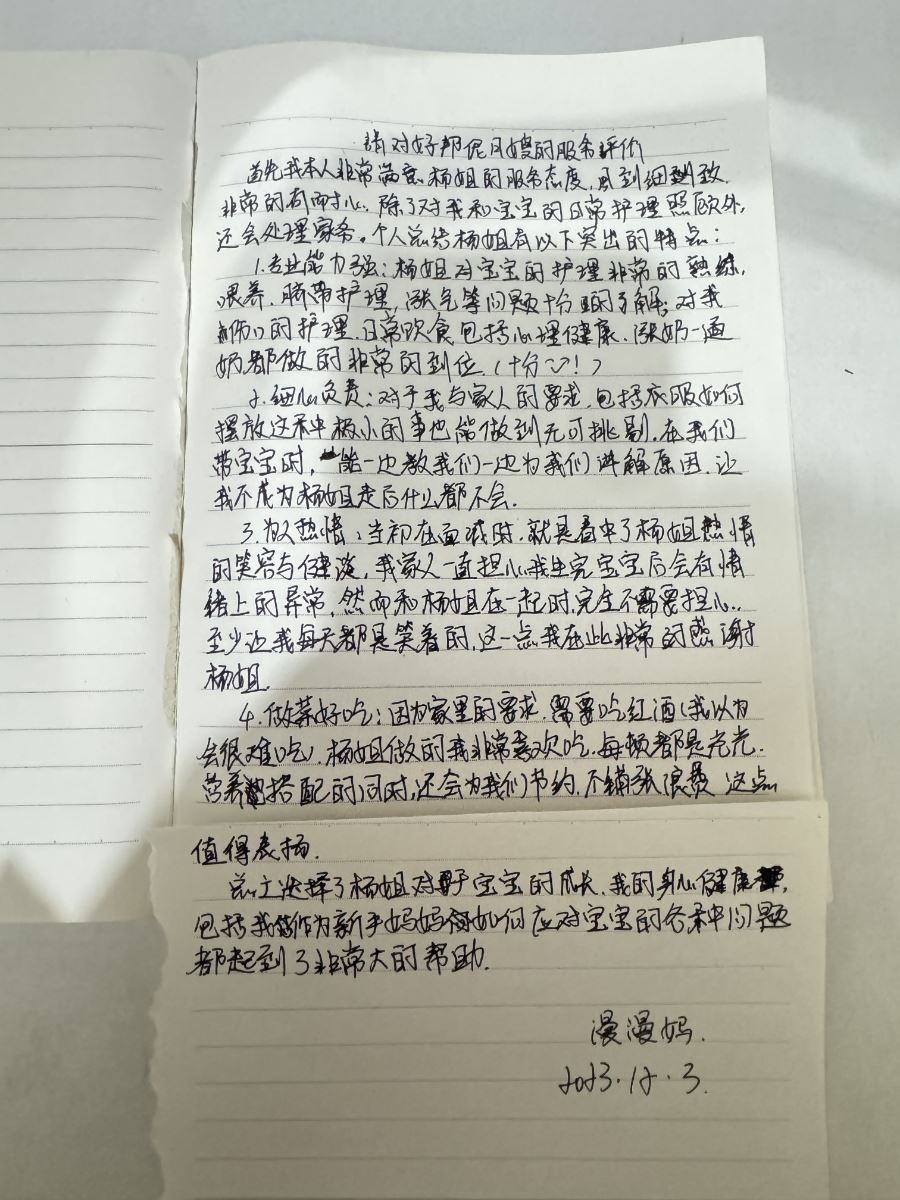 请对好帮伲月嫂的服务评价
首先我本人非常满意杨姐的服务态度,周到细致,
非常的有耐心。除了对我和宝宝的日常护理照顾外,
还会处理家务。个人总结杨姐有以下突出的特点:
1.专业能力强:杨姐对宝宝的护理非常的熟练,
喂养、脐带护理,涨气等问题十分的了解;对我
伤口的护理、日常饮食包括心理健康、涨奶一通
奶都做的非常的到位(十分!)
2.细心负责:对于我与家人的要求,包括衣服如何
摆放这种极小的事也能做到无可挑剔,在我们
带宝宝时,能一边教我们一边为我们讲解原因,让
我不成为杨姐走后什么都不会.
3.为人热情:当初在面试时,就是看中了杨姐热情
的笑容与健谈,我家人一直担心我生完宝宝后会有情
绪上的异常,然而和杨姐在一起时,完全不需要担心..
至少让我每天都是笑着的,这一点我在此非常的感谢
杨姐.
4.做菜好吃:因为家里的要求,需要吃红酒(我以为
会很难吃),杨姐做的我非常喜欢吃,每顿都是光光.
营养搭配的同时,还会为我们节约,不铺张浪费 这点
值得表扬.
总之选择了杨姐对于宝宝的成长、我的身心健康,
包括我作为新手妈妈如何应对宝宝的各种问题
都起到了非常大的帮助.
漫漫妈.
2023.12.3.